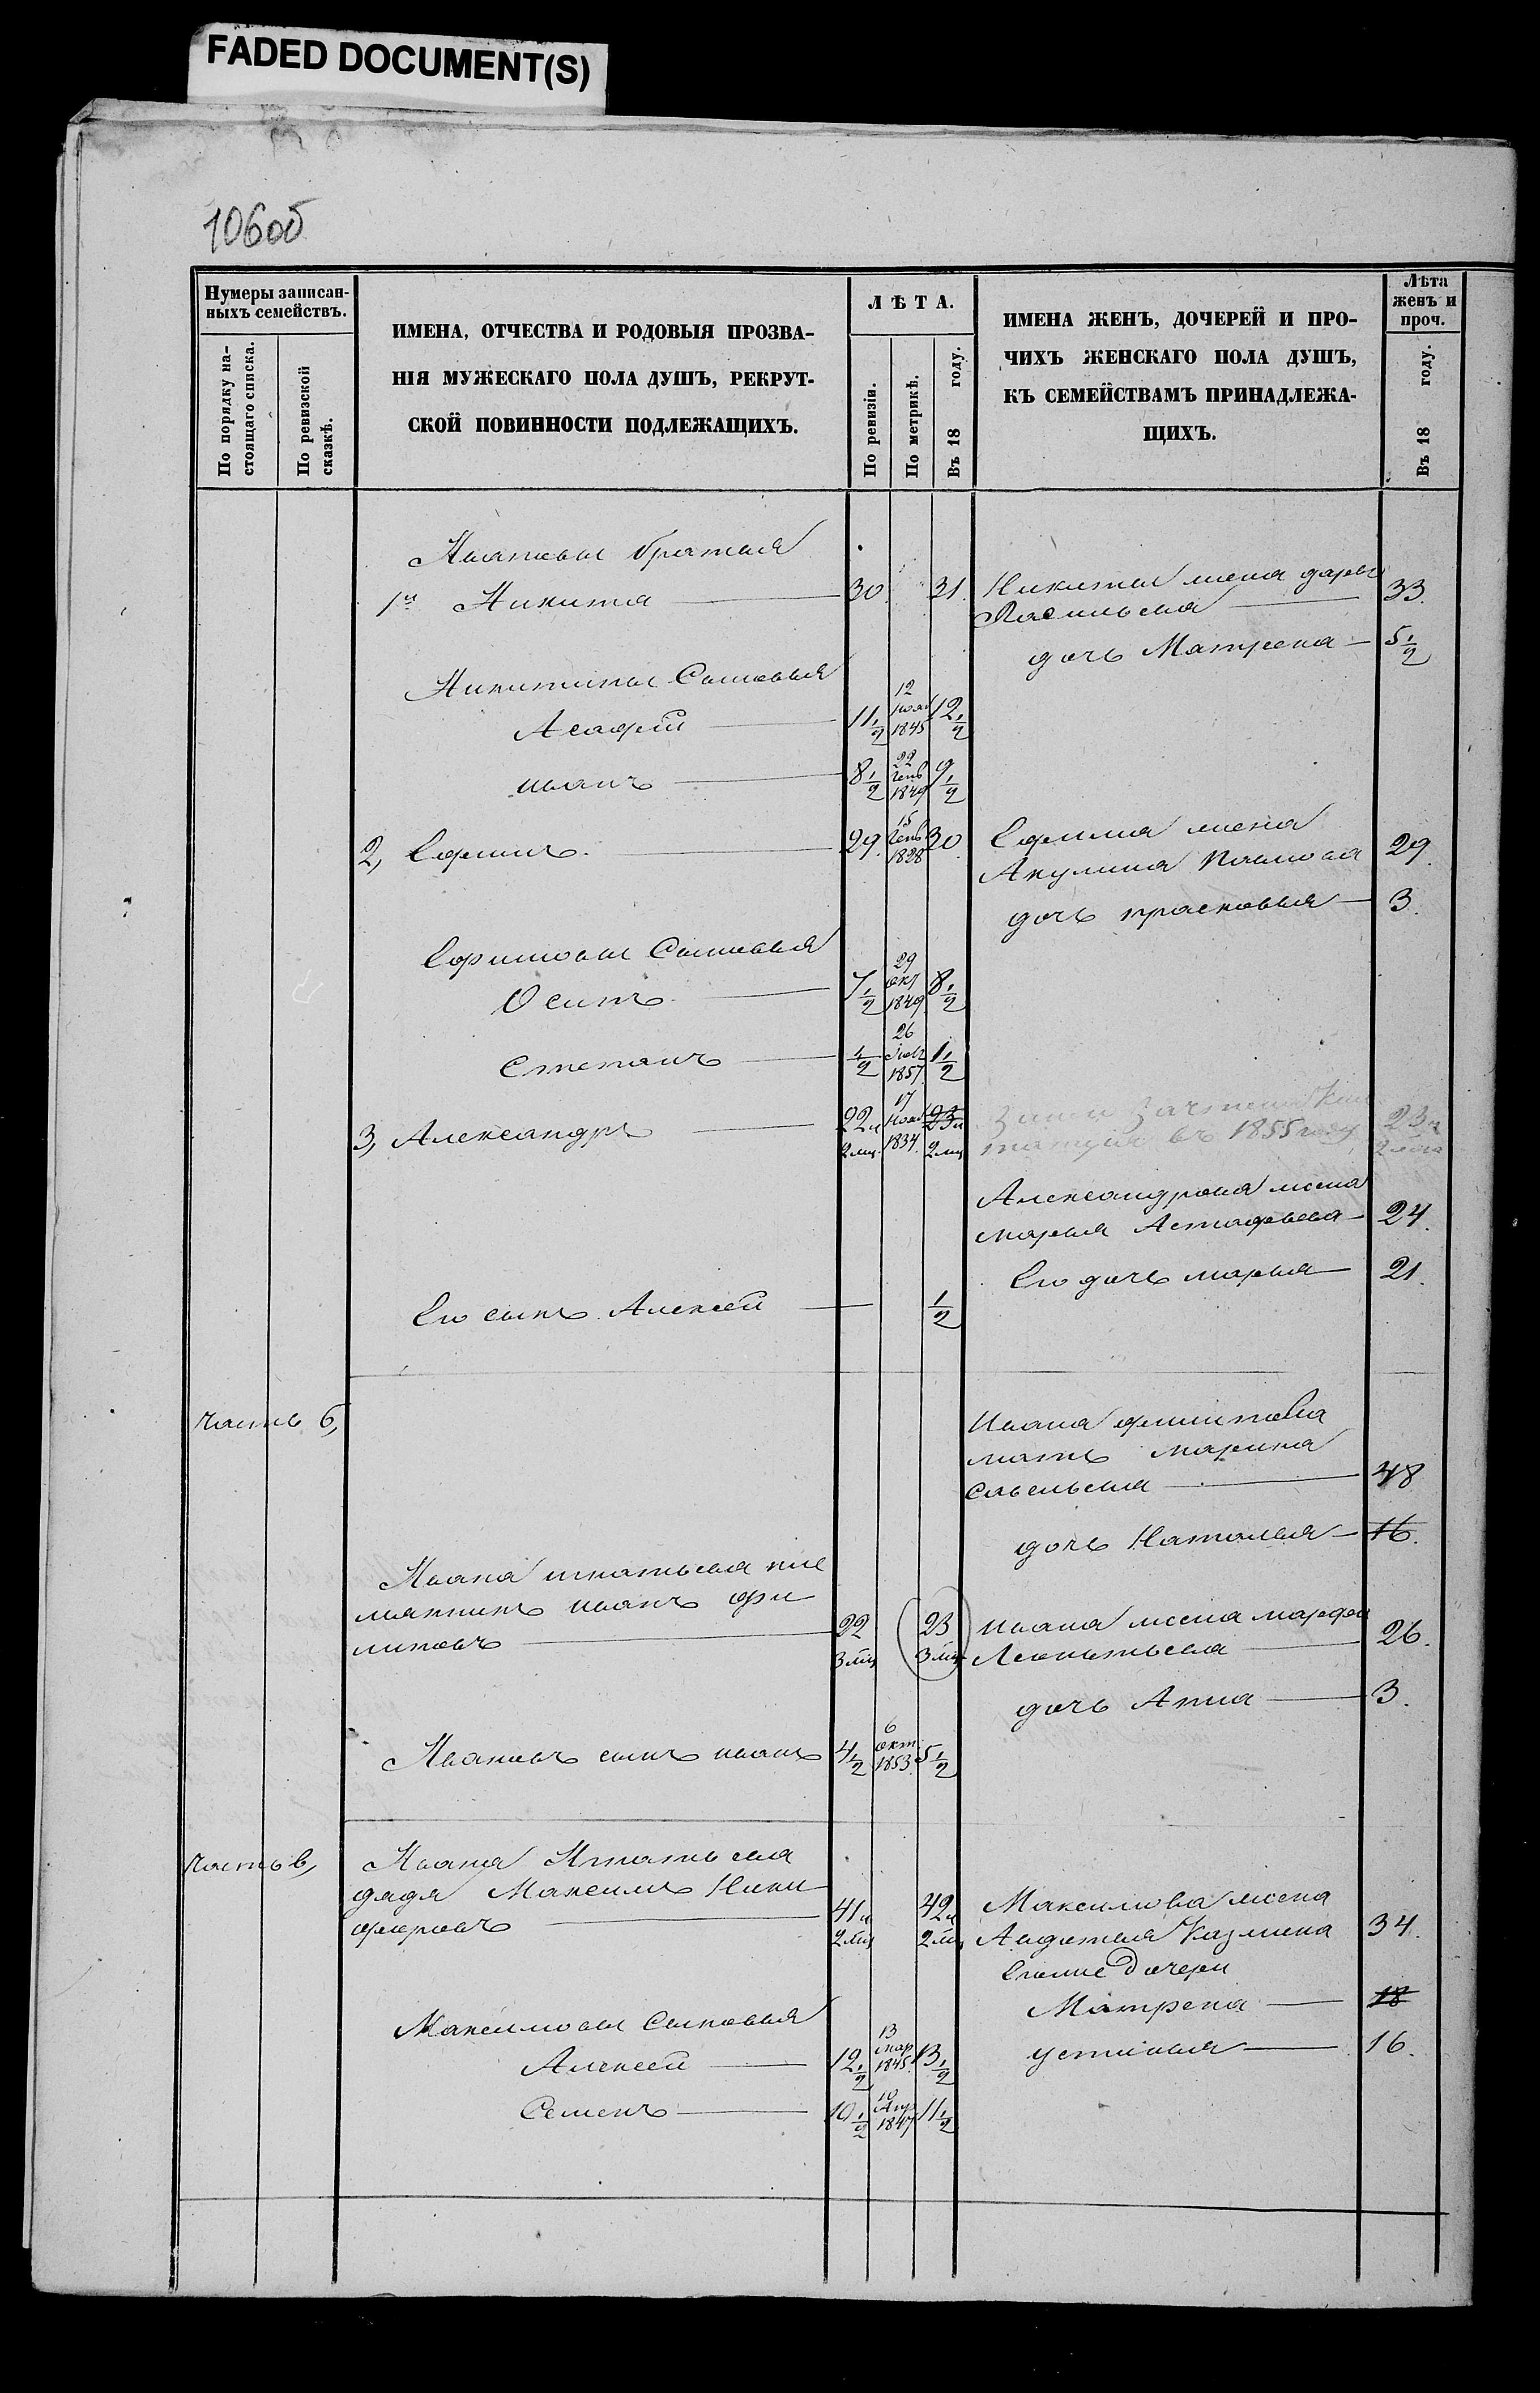 FADED DOCUMENT(S)
106об
Нумеры записан-
ныхъ семействъ.
По порядку на-
стоящаго списка.
По ревизской
сказкѣ.
ИМЕНА, ОТЧЕСТВА И РОДОВЫЯ ПРОЗВА-
НІЯ МУЖЕСКАГО ПОЛА ДУШЪ, РЕКРУТ-
СКОЙ ПОВИННОСТИ ПОДЛЕЖАЩИХЪ.
ЛѢТА.
По ревизіи.
По метрикѣ.
Въ 18 году.
ИМЕНА ЖЕНЪ, ДОЧЕРЕЙ И ПРО-
ЧИХЪ ЖЕНСКАГО ПОЛА ДУШЪ,
КЪ СЕМЕЙСТВАМЪ ПРИНАДЛЕЖА-
ЩИХЪ.
Лѣта
женъ и
проч.
Въ 18 году.
Ивановы братья
1й Никита 30. 31. Никиты жена дарья
Васильева 33.
дочь Матрена 5 1/2
Никитины Сыновья
Асафій 11 1/2 12 нояб 1845 12 1/2
иванъ 8 1/2 22 1849 9 1/2
2, Ефимъ. 29. 15 1828 30. Ефима жена
Акулина 29.
дочь прасковья 3.
Ефимовы Сыновья
Осипъ 7 1/2 29 окт 1849 8 1/2
Степанъ 1/2 26 1857 1 1/2
3, Александръ 22л 2мц. 17 нояб 1834. 23л 2мц
въ 1855 году 23л
Александрова жена
марья Астафьева 24.
Его дочь марья 21.
Его сынъ Алексей 1/2
часть б,
Ивана филипова
мать марина
Савельева 48
дочь Наталья 16.
Ивана игнатьева пле
мянникъ иванъ фи
липовъ 22 3мц 23 3мц
ивана жена марфа
Леонтьева 26.
дочь Анна 3.
Ивановъ сынъ иванъ 4 1/2 6 окт. 1853. 5 1/2
часть в,
Ивана Игнатьева
дядя Максимъ Ники
форовъ 41л 2мц 42л 2мц
Максимова жена
Авдотья Казмина 34.
дочери
Матрена 18
устинья 16.
Максимовы Сыновья
Алексей 12 1/2 13 мар 1845. 13 1/2
Семенъ 10 1/2 10 Апр 1847 11 1/2